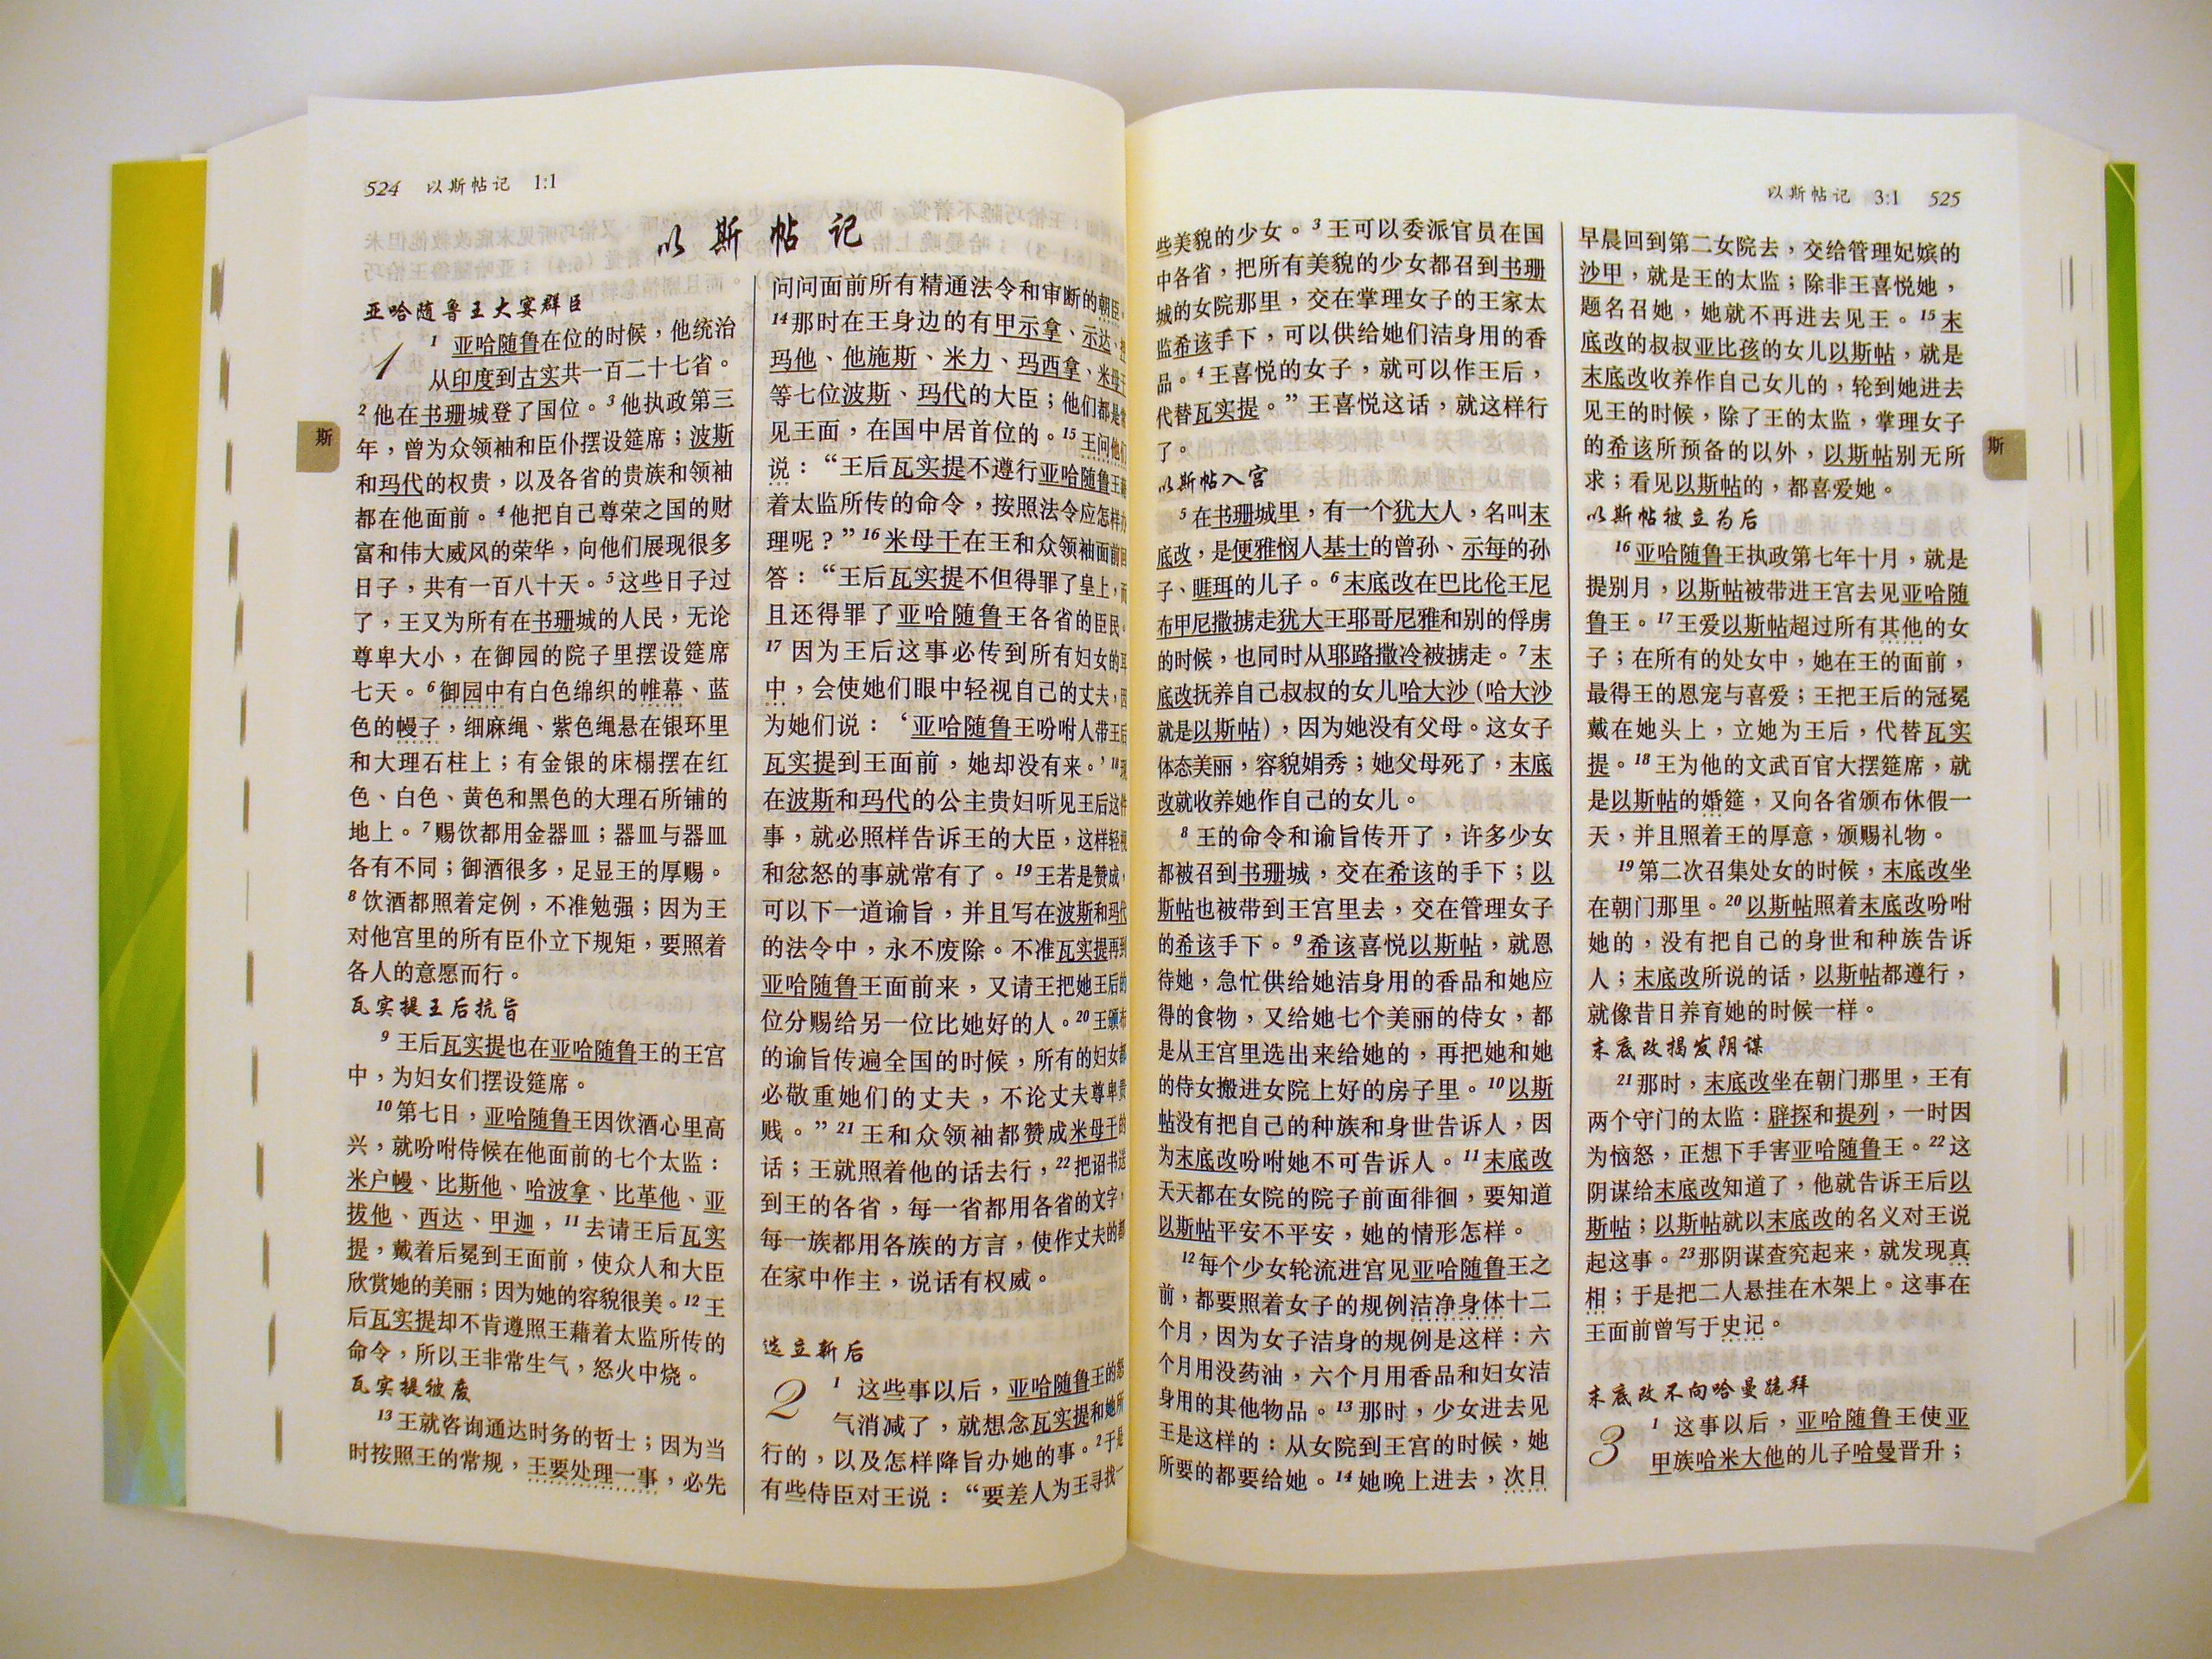 524 以斯帖记 1:1
以斯帖记
亚哈随鲁王大宴群臣
1 1 亚哈随鲁在位的时候，他统治
从印度到古实共一百二十七省。
2 他在书珊城登了国位。3 他执政第三
年，曾为众领袖和臣仆摆设筵席；波斯
和玛代的权贵，以及各省的贵族和领袖
都在他面前。4 他把自己尊荣之国的财
富和伟大威风的荣华，向他们展现很多
日子，共有一百八十天。5 这些日子过
了，王又为所有在书珊城的人民，无论
尊卑大小，在御园的院子里摆设筵席
七天。6 御园中有白色绵织的帷幕、蓝
色的幔子，细麻绳、紫色绳悬在银环里
和大理石柱上；有金银的床榻摆在红
色、白色、黄色和黑色的大理石所铺的
地上。7 赐饮都用金器皿；器皿与器皿
各有不同；御酒很多，足显王的厚赐。
8 饮酒都照着定例，不准勉强；因为王
对他宫里的所有臣仆立下规矩，要照着
各人的意愿而行。
瓦实提王后抗旨
9 王后瓦实提也在亚哈随鲁王的王宫
中，为妇女们摆设筵席。
10 第七日，亚哈随鲁王因饮酒心里高
兴，就吩咐侍候在他面前的七个太监：
米户幔、比斯他、哈波拿、比革他、亚
拔他、西达、甲迦，11 去请王后瓦实
提，戴着后冕到王面前，使众人和大臣
欣赏她的美丽；因为她的容貌很美。12 王
后瓦实提却不肯遵照王藉着太监所传的
命令，所以王非常生气，怒火中烧。
瓦实提被废
13 王就咨询通达时务的哲士；因为当
时按照王的常规，王要处理一事，必先
问问面前所有精通法令和审断的朝臣。
14 那时在王身边的有甲示拿、示达、
玛他、他施斯、米力、玛西拿、米母干
等七位波斯、玛代的大臣；他们都是常
见王面，在国中居首位的。15 王问他们
说：“王后瓦实提不遵行亚哈随鲁王藉
着太监所传的命令，按照法令应怎样办
理呢？”16 米母干在王和众领袖面前回
答：“王后瓦实提不但得罪了皇上，而
且还得罪了亚哈随鲁王各省的臣民。
17 因为王后这事必传到所有妇女的耳
中，会使她们眼中轻视自己的丈夫，因
为她们说：‘亚哈随鲁王吩咐人带王后
瓦实提到王面前，她却没有来。’18 现
在波斯和玛代的公主贵妇听见王后这件
事，就必照样告诉王的大臣，这样轻视
和忿怒的事就常有了。19 王若是赞成，
可以下一道谕旨，并且写在波斯和玛代
的法令中，永不废除。不准瓦实提再到
亚哈随鲁王面前来，又请王把她王后的
位分赐给另一位比她好的人。20 王颁布
的谕旨传遍全国的时候，所有的妇女都
必敬重她们的丈夫，不论丈夫尊卑贵
贱。”21 王和众领袖都赞成米母干的
话；王就照着他的话去行，22 把诏书送
到王的各省，每一省都用各省的文字，
每一族都用各族的方言，使作丈夫的都
在家中作主，说话有权威。
选立新后
2 1 这些事以后，亚哈随鲁王的怒
气消减了，就想念瓦实提和她所
行的，以及怎样降旨办她的事。2 于是
有些侍臣对王说：“要差人为王寻找一
以斯帖记 3:1 525
些美貌的少女。3 王可以委派官员在国
中各省，把所有美貌的少女都召到书珊
城的女院那里，交在掌理女子的王家太
监希该手下，可以供给她们洁身用的香
品。4 王喜悦的女子，就可以作王后，
代替瓦实提。”王喜悦这话，就这样行
了。
以斯帖入宫
5 在书珊城里，有一个犹大人，名叫末
底改，是便雅悯人基士的曾孙、示每的孙
子、睚珥的儿子。6 末底改在巴比伦王尼
布甲尼撒掳走犹大王耶哥尼雅和别的俘虏
的时候，也同时从耶路撒冷被掳走。7 末
底改抚养自己叔叔的女儿哈大沙（哈大沙
就是以斯帖），因为她没有父母。这女子
体态美丽，容貌娟秀；她父母死了，末底
改就收养她作自己的女儿。
8 王的命令和谕旨传开了，许多少女
都被召到书珊城，交在希该的手下；以
斯帖也被带到王宫里去，交在管理女子
的希该手下。9 希该喜悦以斯帖，就恩
待她，急忙供给她洁身用的香品和她应
得的食物，又给她七个美丽的侍女，都
是从王宫里选出来给她的，再把她和她
的侍女搬进女院上好的房子里。10 以斯
帖没有把自己的种族和身世告诉人，因
为末底改吩咐她不可告诉人。11 末底改
天天都在女院的院子前面徘徊，要知道
以斯帖平安不平安，她的情形怎样。
12 每个少女轮流进宫见亚哈随鲁王之
前，都要照着女子的规例洁净身体十二
个月，因为女子洁身的规例是这样：六
个月用没药油，六个月用香品和妇女洁
身用的其他物品。13 那时，少女进去见
王是这样的：从女院到王宫的时候，她
所要的都要给她。14 她晚上进去，次日
早晨回到第二女院去，交给管理妃嫔的
沙甲，就是王的太监；除非王喜悦她，
题名召她，她就不再进去见王。15 末
底改的叔叔亚比孩的女儿以斯帖，就是
末底改收养作自己女儿的，轮到她进去
见王的时候，除了王的太监，掌理女子
的希该所预备的以外，以斯帖别无所
求；看见以斯帖的，都喜爱她。
以斯帖被立为后
16 亚哈随鲁王执政第七年十月，就是
提别月，以斯帖被带进王宫去见亚哈随
鲁王。17 王爱以斯帖超过所有其他的女
子；在所有的处女中，她在王的面前，
最得王的恩宠与喜爱；王把王后的冠冕
戴在她头上，立她为王后，代替瓦实
提。18 王为他的文武百官大摆筵席，就
是以斯帖的婚筵，又向各省颁布休假一
天，并且照着王的厚意，颁赐礼物。
19 第二次召集处女的时候，末底改坐
在朝门那里。20 以斯帖照着末底改吩咐
她的，没有把自己的身世和种族告诉
人；末底改所说的话，以斯帖都遵行，
就像昔日养育她的时候一样。
末底改揭发阴谋
21 那时，末底改坐在朝门那里，王有
两个守门的太监：辟探和提列，一时因
为恼怒，正想下手害亚哈随鲁王。22 这
阴谋给末底改知道了，他就告诉王后以
斯帖；以斯帖就以末底改的名义对王说
起这事。23 那阴谋查究起来，就发现真
相；于是把二人悬挂在木架上。这事在
王面前曾写于史记。
末底改不向哈曼跪拜
3 1 这事以后，亚哈随鲁王使亚
甲族哈米大他的儿子哈曼晋升；
斯
斯